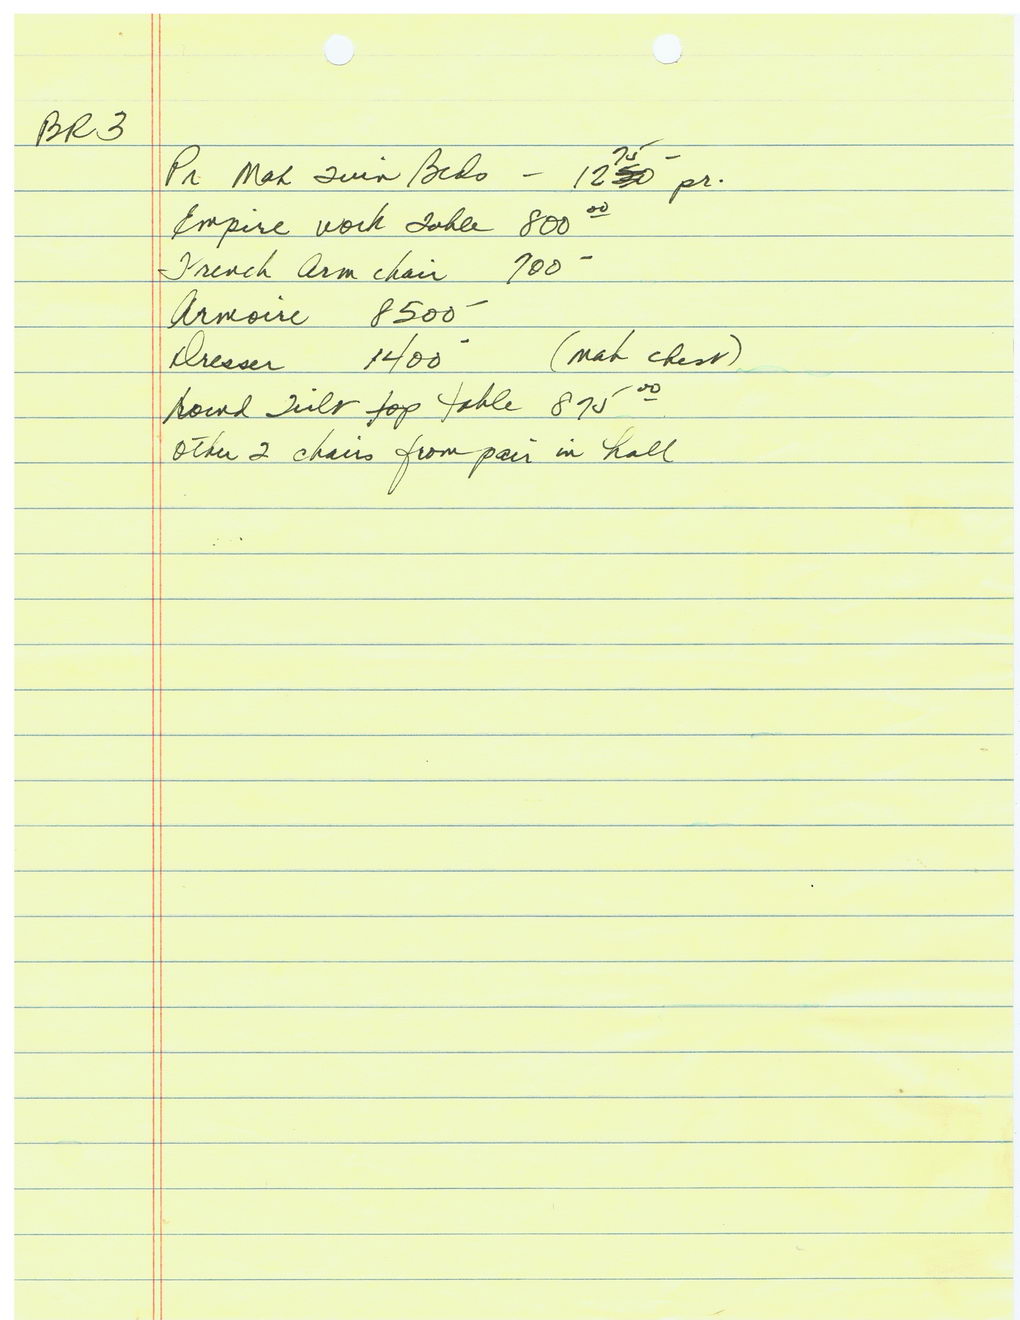 BR3
Pr Mah Twin Beds - 1275- pr.
Empire work table 800 00
French Arm chair 700 -
Armoire 8500 -
Dresser 1400 - (mah chest)
Round Tilt top table 875 00
other 2 chairs from pair in hall